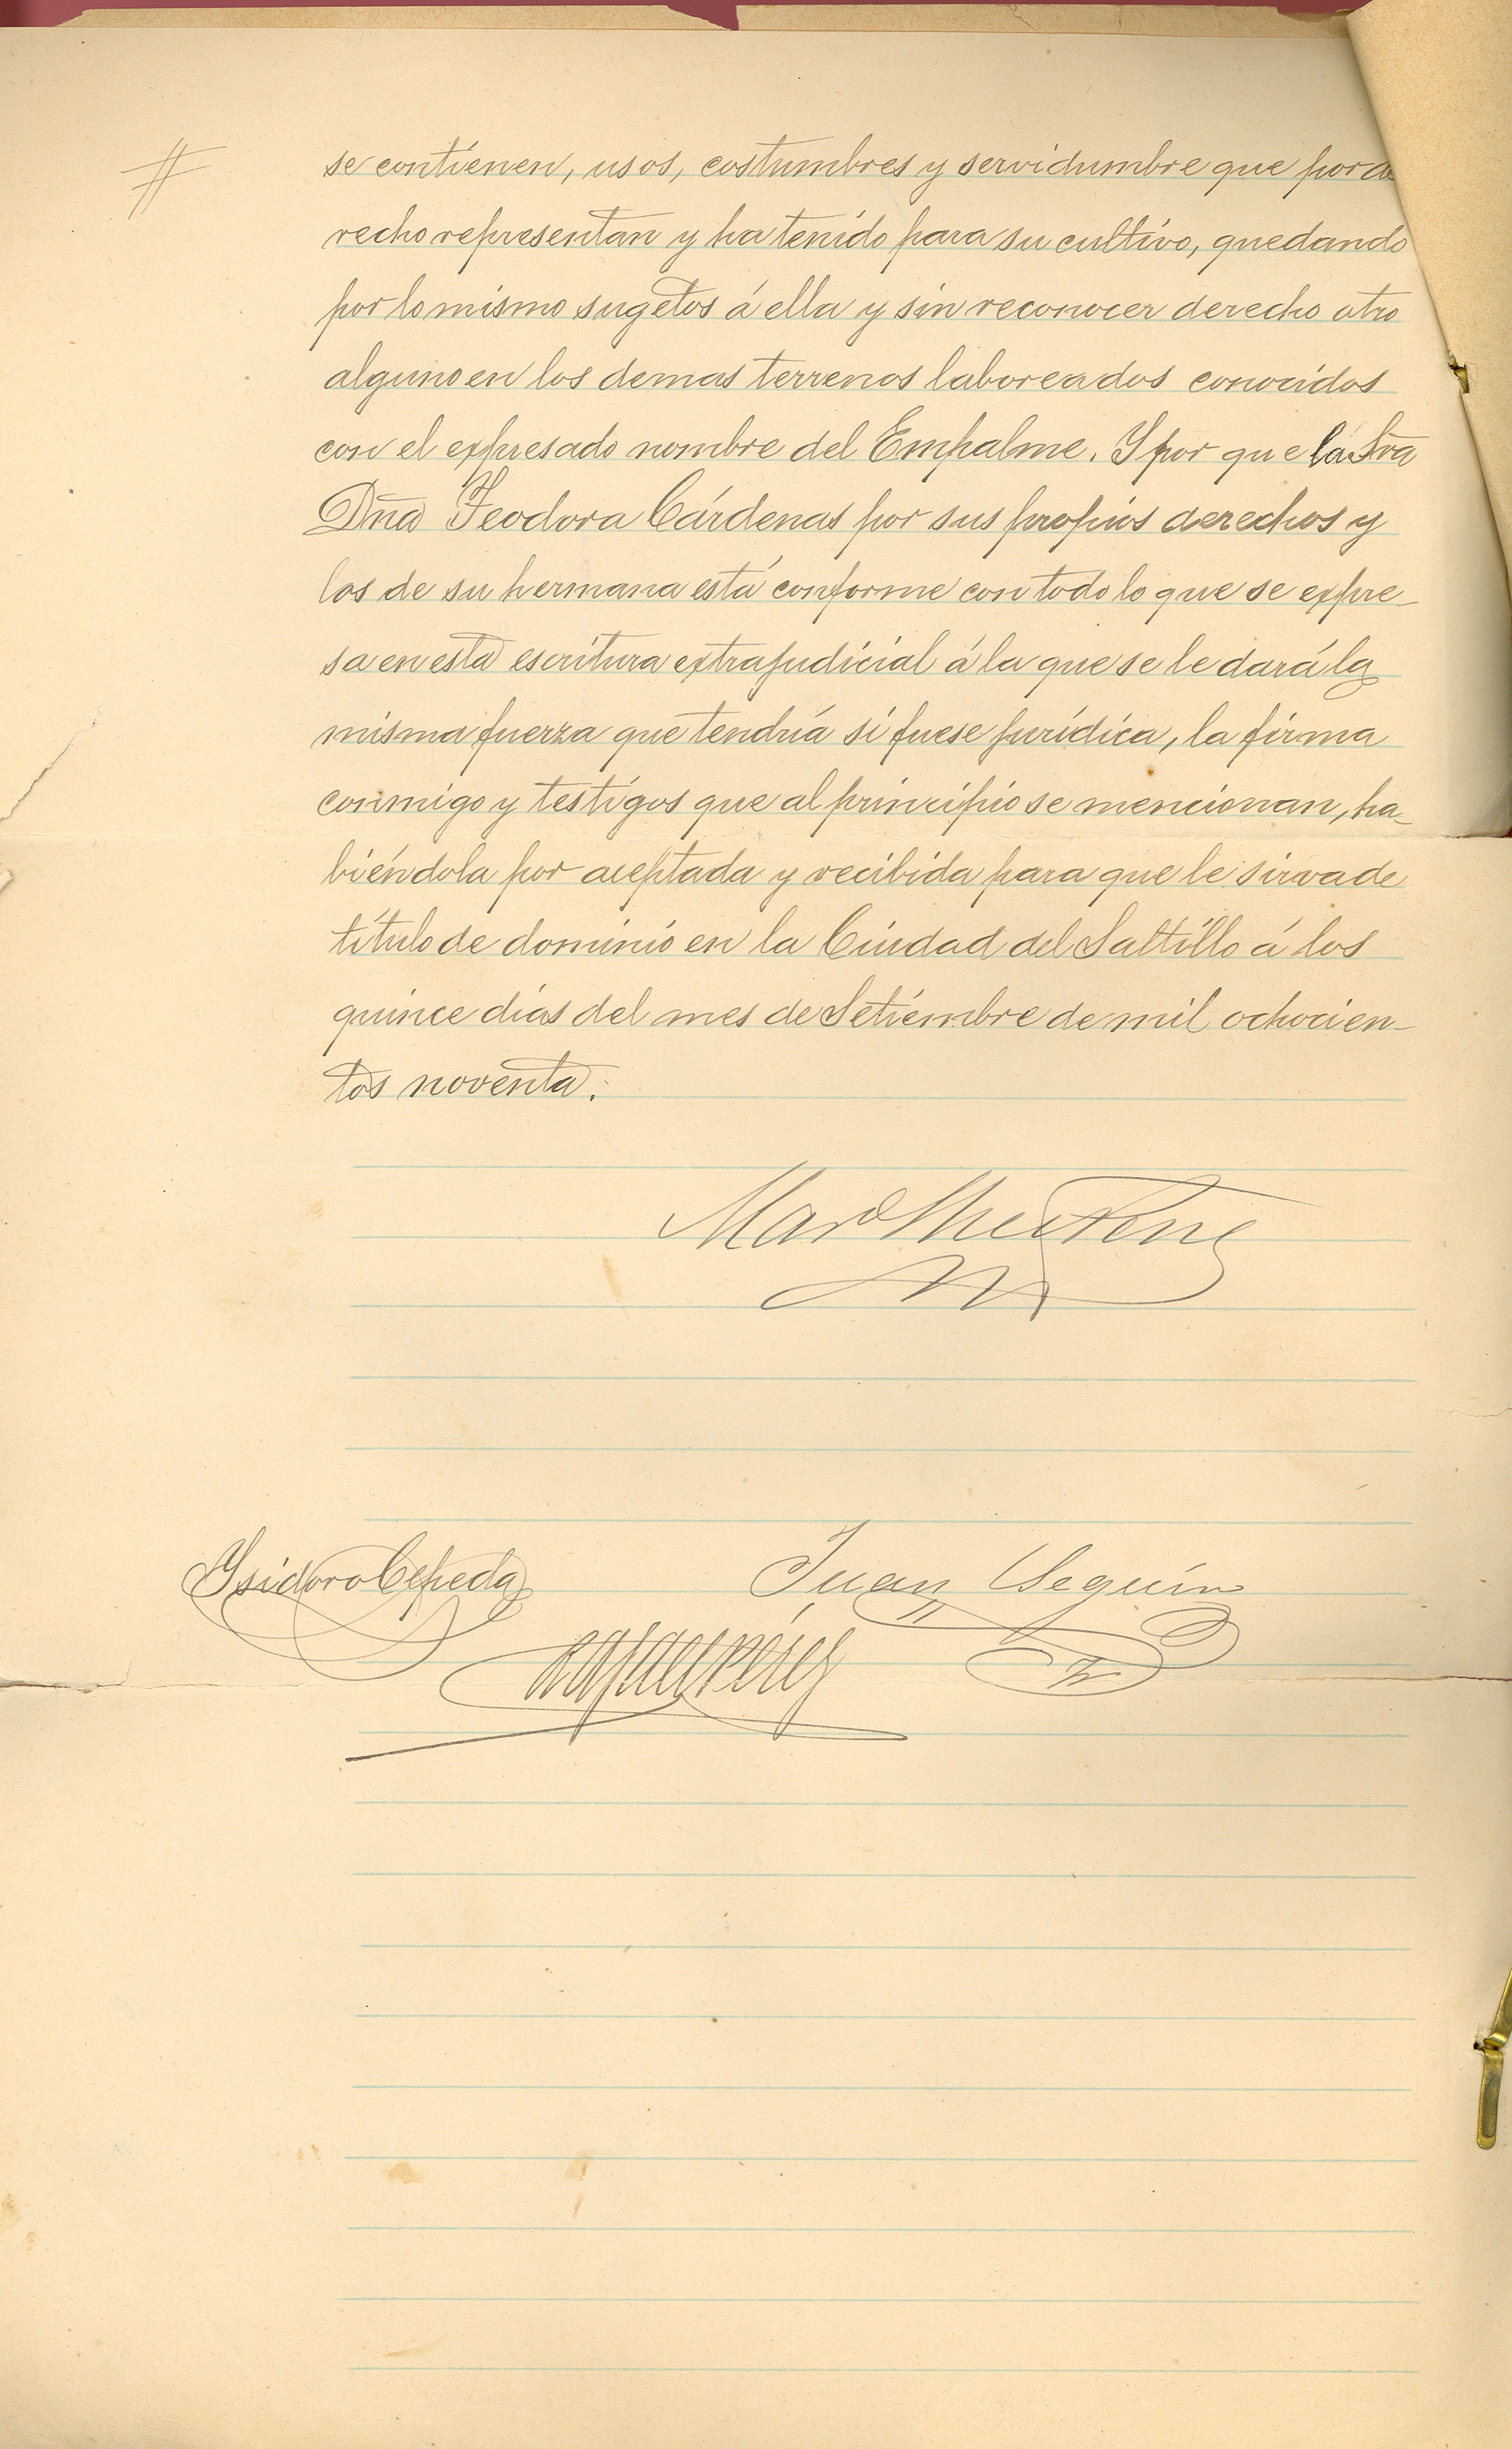 #
se contienen, usos, costumbres y servidumbre que por de
recho representan y ha tenido para su cultivo, quedando
por lo mismo sugetos á ella y sin reconocer derecho otro
alguno en los demas terrenos laboreados conocidos
con el expresado nombre del Empalme. Y por que la Sra
Dña Teodora Cárdenas por sus propios derechos y
los de su hermana está conforme con todo lo que se expre-
sa en esta escritura extrajudicial á la que se le dará la
misma fuerza que tendría si fuese jurídica, la firma
conmigo y testigos que al principio se mencionan, ha-
biéndola por aceptada y recibida para que le sirva de
título de dominio en la Ciudad del Saltillo á los
quince días del mes de Setiembre de mil ochocien-
tos noventa.
Ysidoro Cepeda
Juan Seguin
Rafael Pérez